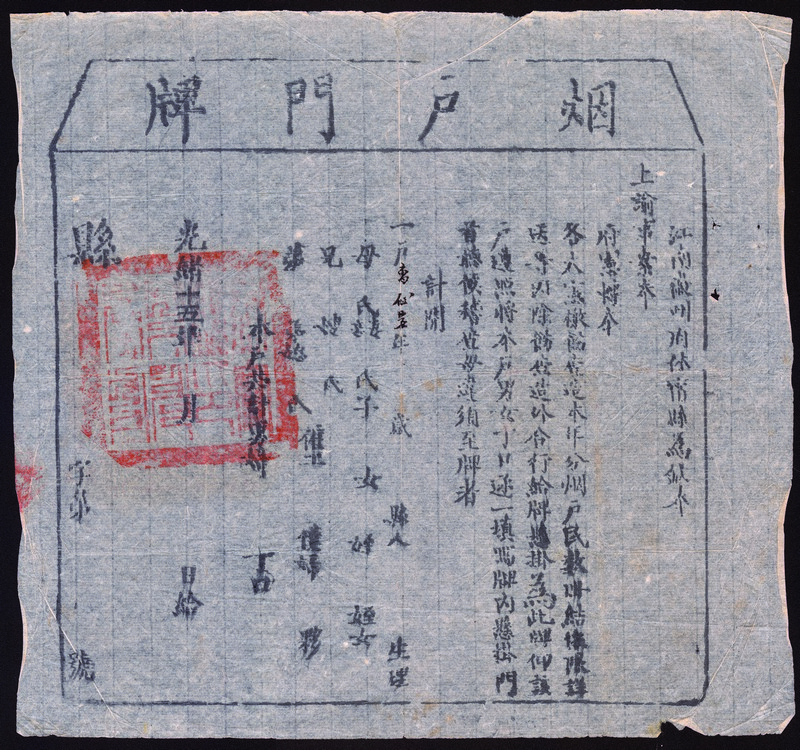 烟戶門牌
江南徽州府休甯縣為欽奉
上諭事案奉
府憲轉奉
各大憲檄飭查造本年分烟戶民數冊結依限詳
送等因除飭查造外合行給牌懸掛為此牌仰該
戶遵照將本戶男女丁口逐一填寫牌內懸掛門
首聽候稽查毋違須至牌者
計開
一戶 年 歲 縣人 生理
母 氏 妻 氏 子 女 姪 姪女
兄 嫂 氏
弟 弟婦 氏 僱工 僱婦 夥
本戶共計男婦 丁口
光緒十五年 月 日給
縣 字第 號